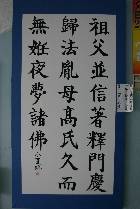 祖父並信著釋門慶
歸法胤母高氏久而
無姙夜夢諸佛